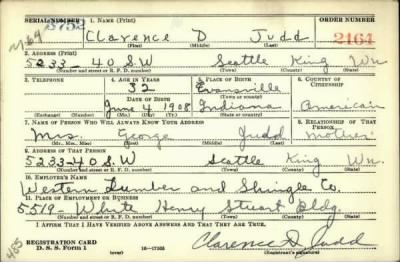 SERIAL NUMBER 1. NAME (Print) ORDER NUMBER
Clarence D Judd 2164
(First) (Middle) (Last)
2. ADDRESS (Print)
5233-40 S.W Seattle King Wn
(Number and street or R. F. D. number) (Town) (County) (State)
3. TELEPHONE 4. AGE IN YEARS 5. PLACE OF BIRTH 6. COUNTRY OF CITIZENSHIP
32 Evansville
DATE OF BIRTH (Town or county)
June 4 1908 Indiana American
(Exchange) (Number) (Mo.) (Day) (Yr.) (State or country)
7. NAME OF PERSON WHO WILL ALWAYS KNOW YOUR ADDRESS 8. RELATIONSHIP OF THAT PERSON
Mrs. George Judd Mother
(Mr., Mrs., Miss) (First) (Middle) (Last)
9. ADDRESS OF THAT PERSON
5233-40 S.W Seattle King Wn.
(Number and street or R. F. D. number) (Town) (County) (State)
10. EMPLOYER'S NAME
Western Lumber and Shingle Co.
11. PLACE OF EMPLOYMENT OR BUSINESS
5519- White Henry Stuart Bldg.
(Number and street or R. F. D. number) (Town) (County) (State)
I AFFIRM THAT I HAVE VERIFIED ABOVE ANSWERS AND THAT THEY ARE TRUE.
REGISTRATION CARD
D. S. S. Form 1 16-17105 Clarence D. Judd